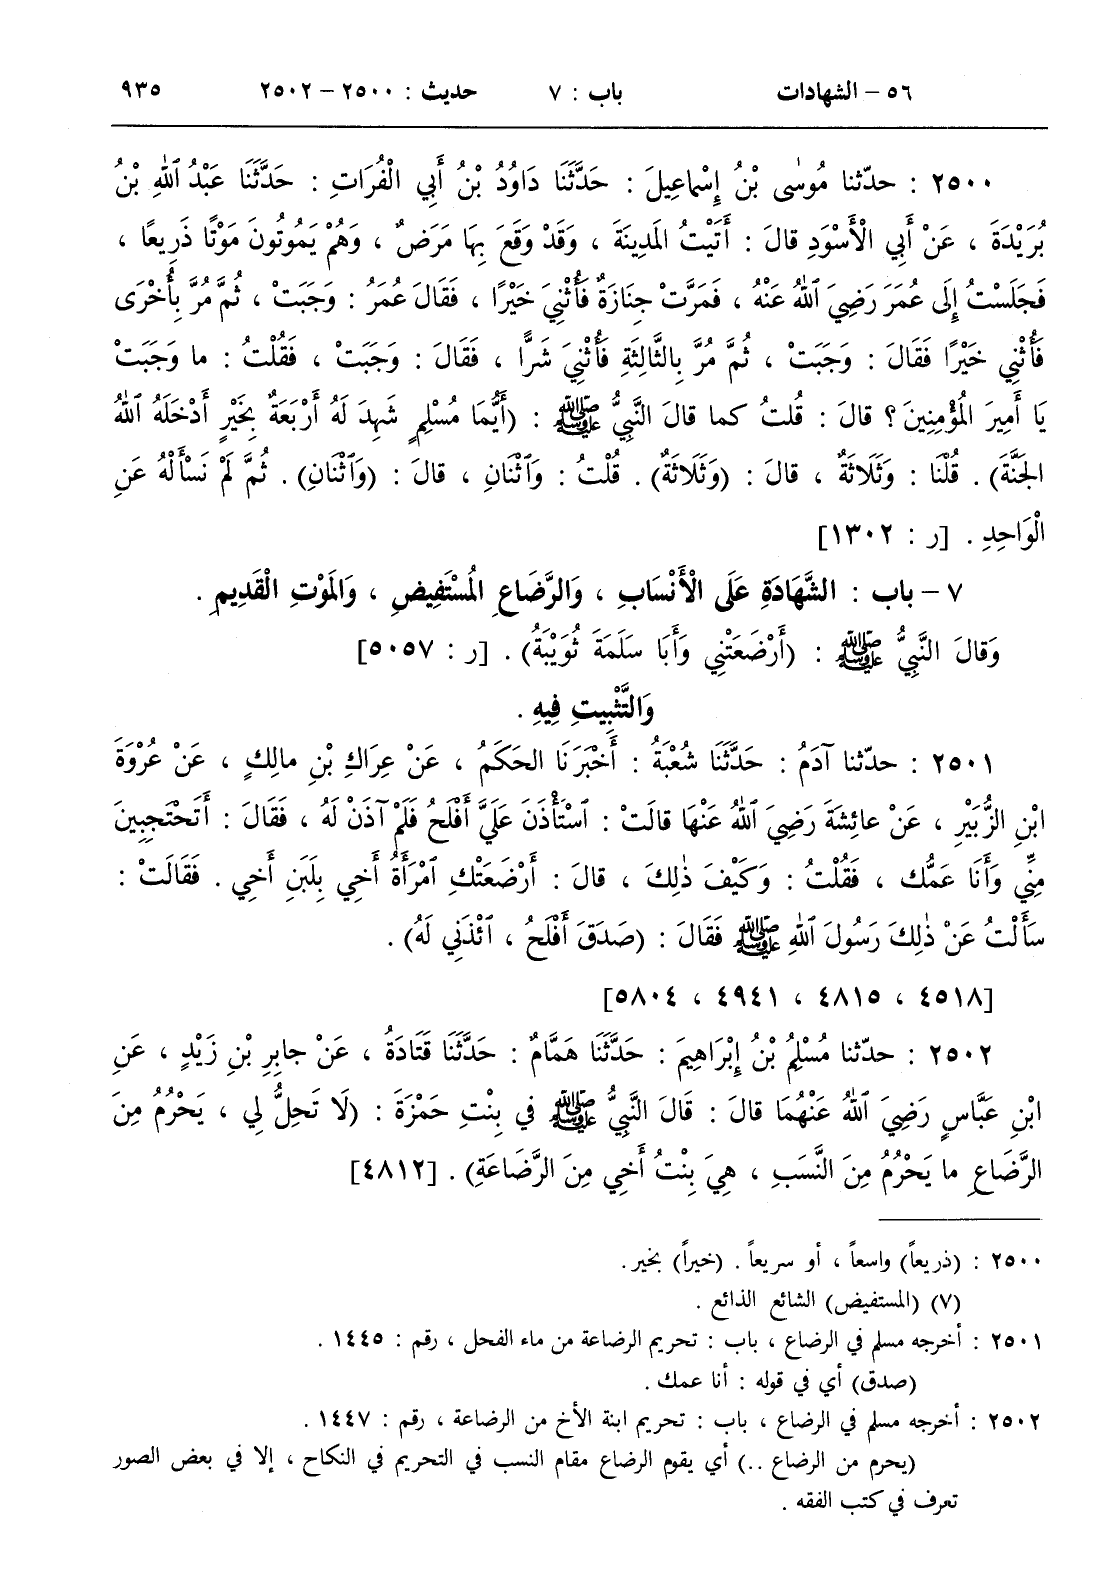 ٥٦ – الشهادات باب : ٧ حديث : ٢٥٠٠ – ٢٥٠٢ ٩٣٥
٢٥٠٠ : حدّثنا مُوسٰى بْنُ إِسْماعِيلَ : حَدَّثَنَا دَاوُدُ بْنُ أَبِي الْفُرَاتِ : حَدَّثَنَا عَبْدُ ٱللهِ بْنُ
بُرَيْدَةَ ، عَنْ أَبِي الْأَسْوَدِ قالَ : أَتَيْتُ المَدِينَةَ ، وَقَدْ وَقَعَ بِهَا مَرَضٌ ، وَهُمْ يَمُوتُونَ مَوْتًا ذَرِيعًا ،
فَجَلَسْتُ إِلَى عُمَرَ رَضِيَ ٱللهُ عَنْهُ ، فَمَرَّتْ جِنَازَةٌ فَأُثْنِيَ خَيْرًا ، فَقَالَ عُمَرُ : وَجَبَتْ ، ثُمَّ مُرَّ بِأُخْرَى
فَأُثْنِي خَيْرًا فَقَالَ : وَجَبَتْ ، ثُمَّ مُرَّ بِالثَّالِثَةِ فَأُثْنِيَ شَرًّا ، فَقَالَ : وَجَبَتْ ، فَقُلْتُ : ما وَجَبَتْ
يَا أَمِيرَ المُؤْمِنِينَ ؟ قالَ : قُلتُ كما قالَ النَّبِيُّ ﷺ : (أَيُّمَا مُسْلِمٍ شَهِدَ لَهُ أَرْبَعَةٌ بِخَيْرٍ أَدْخَلَهُ ٱللهُ
الجَنَّةَ) . قُلْنَا : وَثَلَاثَةٌ ، قالَ : (وَثَلَاثَةٌ) . قُلْتُ : وَٱثْنَانِ ، قالَ : (وَٱثْنَانِ) . ثُمَّ لَمْ نَسْأَلْهُ عَنِ
الْوَاحِدِ . [ر : ١٣٠٢]
٧ – باب : الشَّهَادَةِ عَلَى الْأَنْسَابِ ، وَالرَّضَاعِ المُسْتَفِيضِ ، وَالمَوْتِ الْقَدِيمِ .
وَقالَ النَّبِيُّ ﷺ : (أَرْضَعَتْنِي وَأَبَا سَلَمَةَ ثُوَيْبَةُ) . [ر : ٥٠٥٧]
وَالتَّثْبِيتِ فِيهِ .
٢٥٠١ : حدّثنا آدَمُ : حَدَّثَنَا شُعْبَةُ : أَخْبَرَنَا الحَكَمُ ، عَنْ عِرَاكِ بْنِ مالِكٍ ، عَنْ عُرْوَةَ
ابْنِ الزُّبَيْرِ ، عَنْ عائِشَةَ رَضِيَ ٱللهُ عَنْهَا قالَتْ : ٱسْتَأْذَنَ عَلَيَّ أَفْلَحُ فَلَمْ آذَنْ لَهُ ، فَقَالَ : أَتَحْتَجِبِينَ
مِنِّي وَأَنَا عَمُّك ، فَقُلْتُ : وَكَيْفَ ذٰلِكَ ، قالَ : أَرْضَعَتْكِ ٱمْرَأَةُ أَخِي بِلَبَنِ أَخِي . فَقَالَتْ :
سَأَلْتُ عَنْ ذٰلِكَ رَسُولَ ٱللهِ ﷺ فَقَالَ : (صَدَقَ أَفْلَحُ ، ٱئْذَنِي لَهُ) .
[٤٥١٨ ، ٤٨١٥ ، ٤٩٤١ ، ٥٨٠٤]
٢٥٠٢ : حدّثنا مُسْلِمُ بْنُ إِبْرَاهِيمَ : حَدَّثَنَا هَمَّامٌ : حَدَّثَنَا قَتَادَةُ ، عَنْ جابِرِ بْنِ زَيْدٍ ، عَنِ
ابْنِ عَبَّاسٍ رَضِيَ ٱللهُ عَنْهُمَا قالَ : قَالَ النَّبِيُّ ﷺ في بِنْتِ حَمْزَةَ : (لَا تَحِلُّ لِي ، يَحْرُمُ مِنَ
الرَّضَاعِ ما يَحْرُمُ مِنَ النَّسَبِ ، هِيَ بِنْتُ أَخِي مِنَ الرَّضَاعَةِ) . [٤٨١٢]
٢٥٠٠ : (ذريعاً) واسعاً ، أو سريعاً . (خيراً) بخير .
(٧) (المستفيض) الشائع الذائع .
٢٥٠١ : أخرجه مسلم في الرضاع ، باب : تحريم الرضاعة من ماء الفحل ، رقم : ١٤٤٥ .
(صدق) أي في قوله : أنا عمك .
٢٥٠٢ : أخرجه مسلم في الرضاع ، باب : تحريم ابنة الأخ من الرضاعة ، رقم : ١٤٤٧ .
(يحرم من الرضاع ..) أي يقوم الرضاع مقام النسب في التحريم في النكاح ، إلا في بعض الصور
تعرف في كتب الفقه .